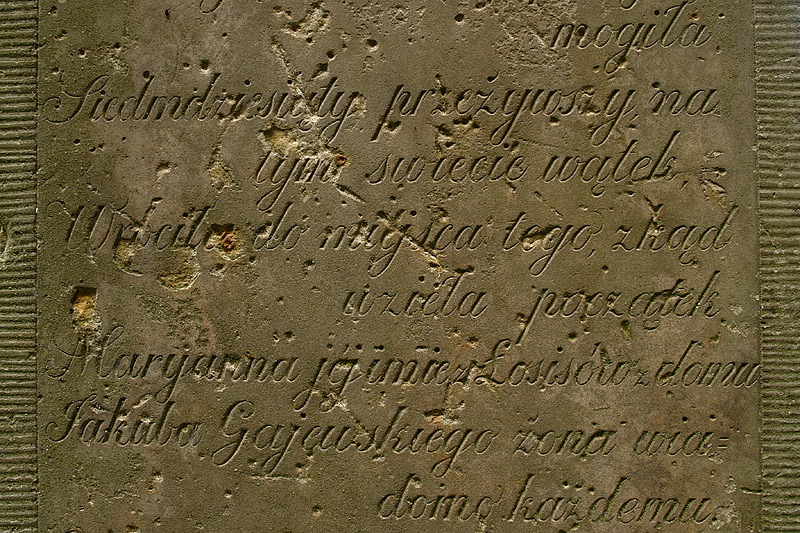 mogiła
Siedmdziesiąty przeżywszy, na
tym swiecie wątek,
Wróciła do miejsca tego, zkąd
wzięła początek
Maryanna jéj imie z Łosisów z domu
Jakuba Gajewskiego żona wia=
domo każdemu.